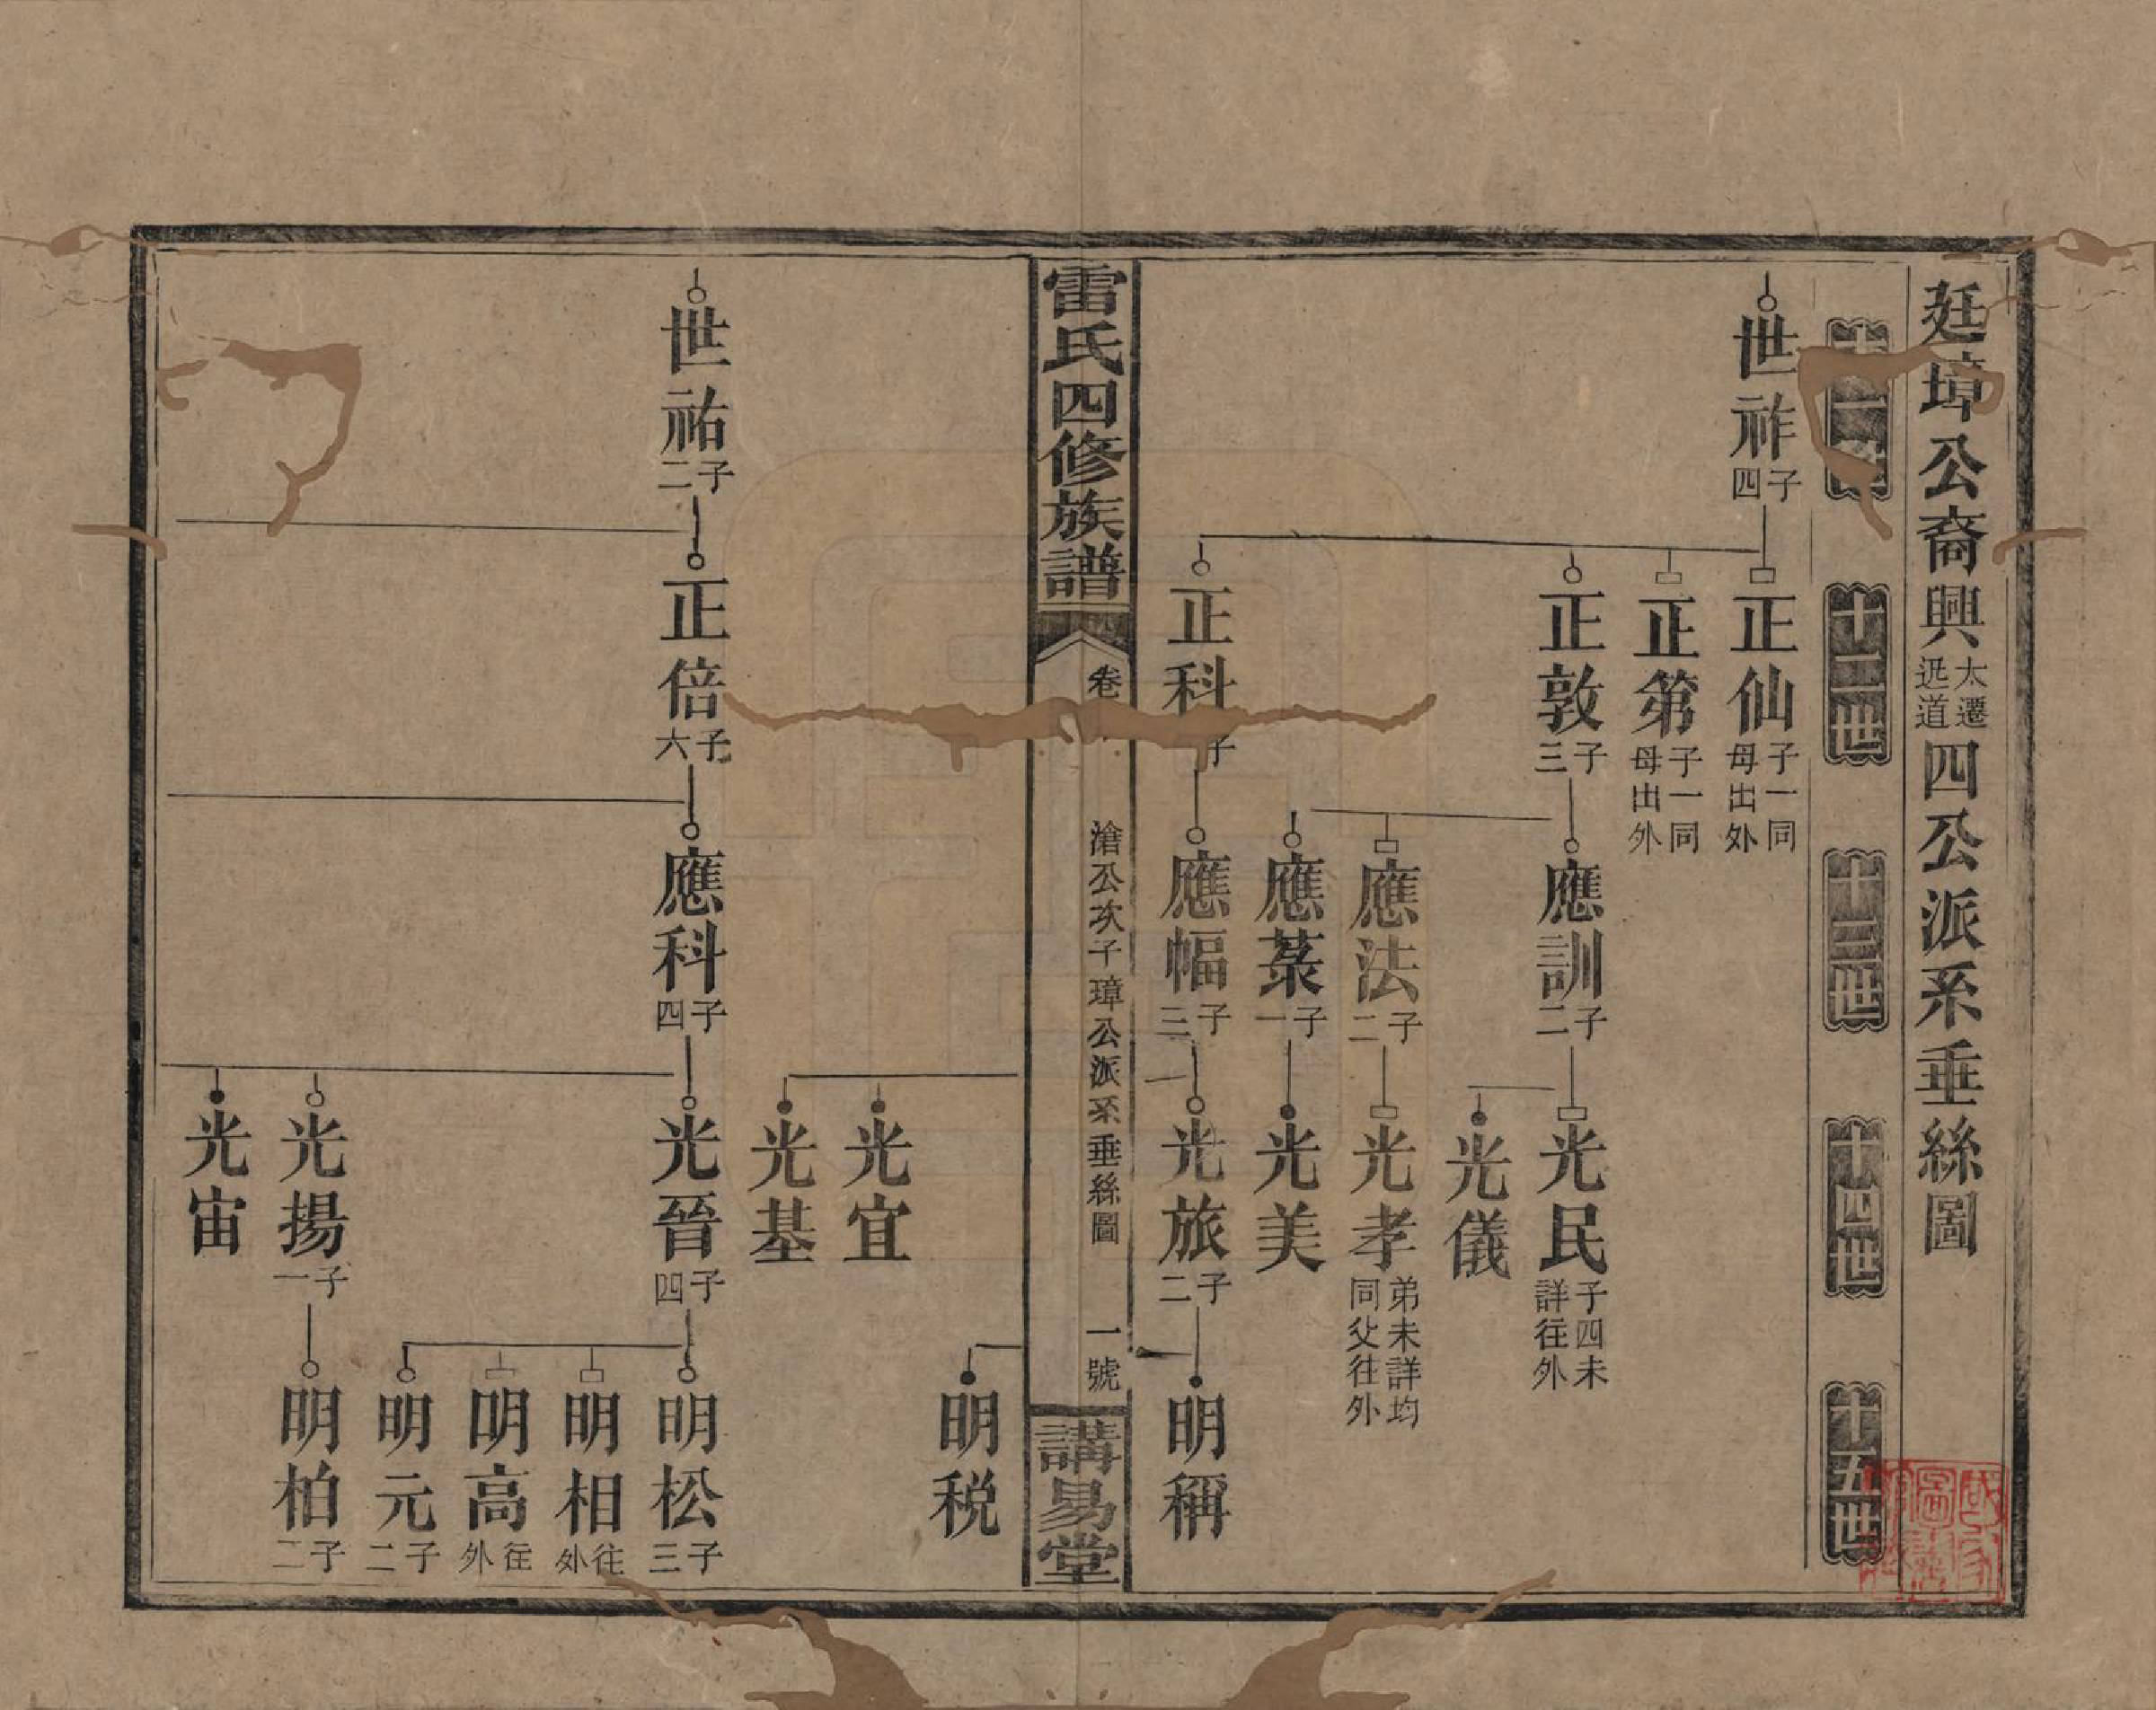 廷璋公裔興太遷迸道四公派系垂絲圖
十一世
十二世
十三世
十四世
十五世
世祚子四
正仙子一同母出外
正第子一同母出外
正敦子三
應訓子二
光民子四未詳往外
光儀
應法子二
光孝弟未詳均同父往外
應菉子一
光美
正科子
應幅子三
光旅子二
明稱
雷氏四修族譜
卷
滄公次子璋公派系垂絲圖
一號
講易堂
明稅
光宜
光基
世祐子二
正倍子六
應科子四
光晉子四
明松子三
明相往外
明高往外
明元子二
光揚子一
明柏子二
光宙